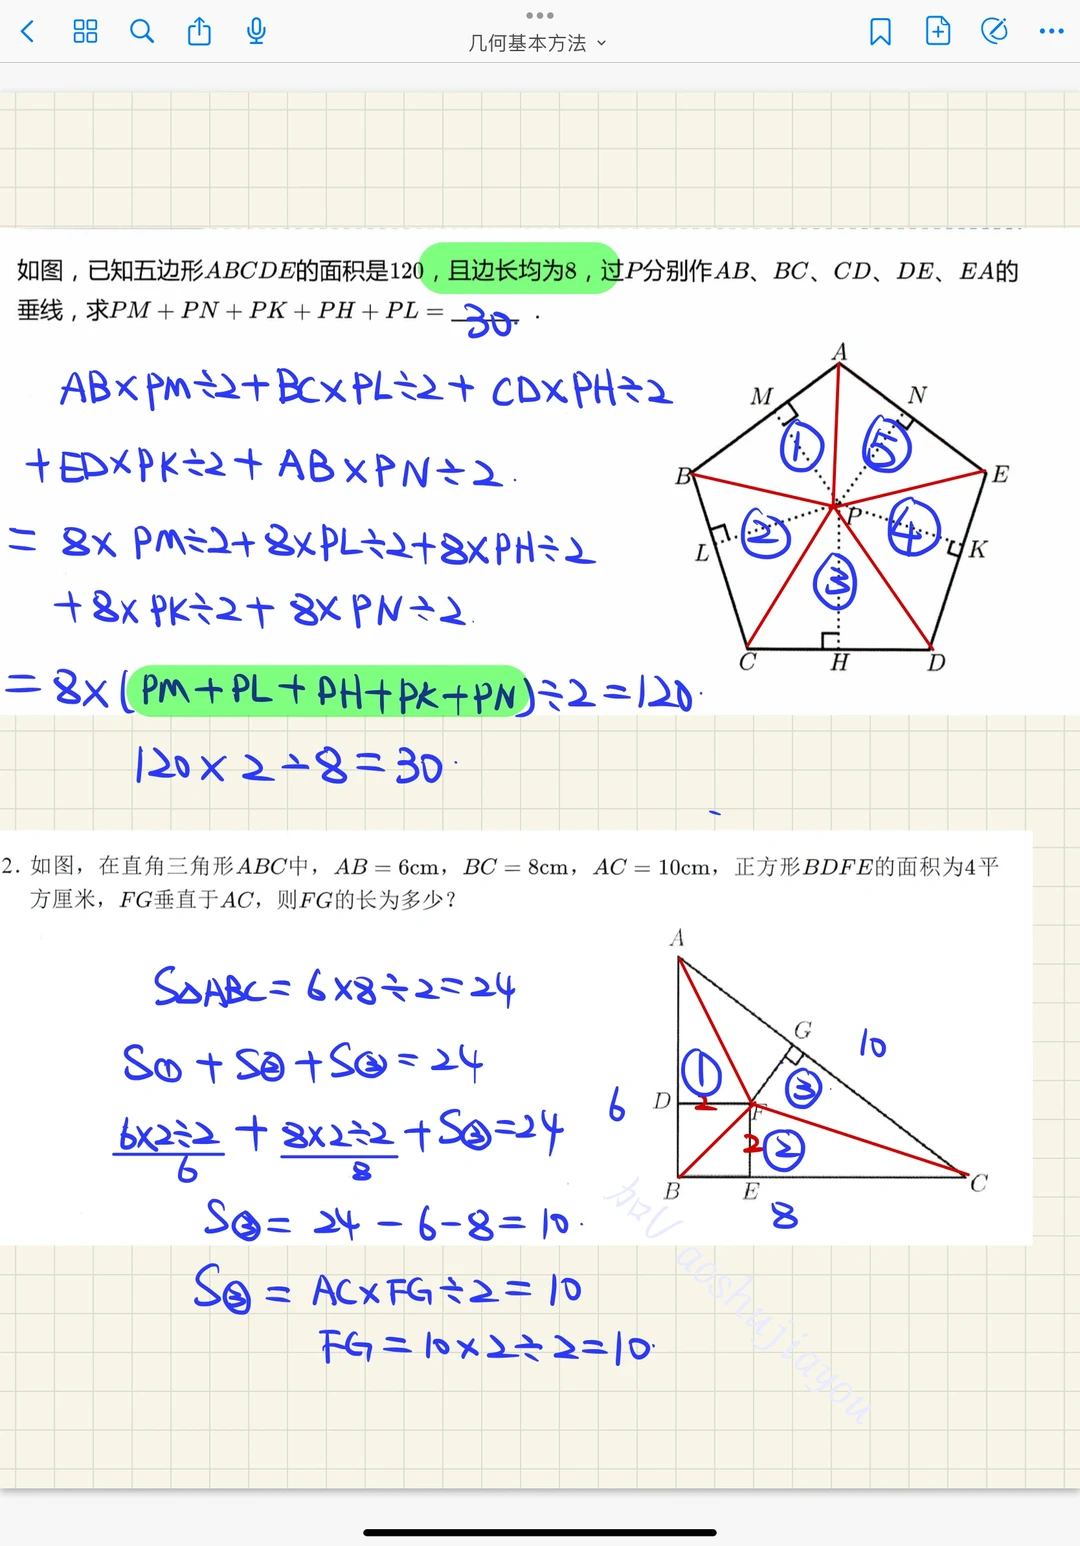 几何基本方法
如图，已知五边形ABCDE的面积是120，且边长均为8，过P分别作AB、BC、CD、DE、EA的
垂线，求PM + PN + PK + PH + PL = 30.
AB×PM÷2+BC×PL÷2+ CD×PH÷2
+ED×PK÷2+ AB×PN÷2.
= 8× PM÷2+8×PL÷2+8×PH÷2
+8×PK÷2+ 8×PN÷2.
= 8×(PM+PL+PH+PK+PN)÷2=120.
120×2÷8=30.
A
M
N
① ⑤
B
E
P
② ④
L
K
③
C
H
D
2. 如图，在直角三角形ABC中，AB = 6cm，BC = 8cm，AC = 10cm，正方形BDFE的面积为4平
方厘米，FG垂直于AC，则FG的长为多少？
S△ABC= 6×8÷2=24
S①+S②+S③=24
6×2÷2 + 8×2÷2 +S③=24
6 8
S③= 24-6-8=10.
S③= AC×FG÷2=10
FG=10×2÷2=10.
A
G
10
① ③
6
D
2
F
2
②
B
E
C
8
加V aoshujiayou